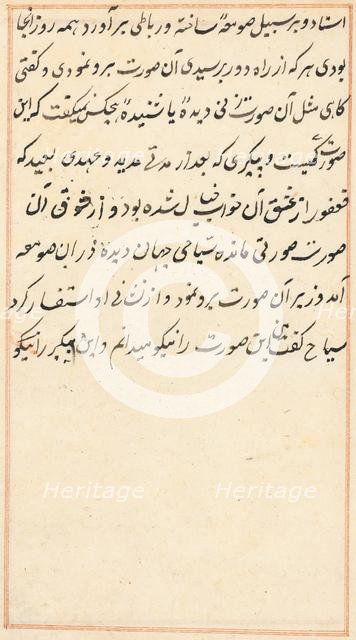 استاد و بر سبیل صومعهٔ ساخته و رباطی برآورد همه روز آنجا
بودی هر که از راه دور برسیدی آن صورت برو نمودی و گفتی
کای مثل آن صورت زنی دیدهٔ یا شنیدهٔ هیچکس نمیگفت که این
صورت کیست و پیکری که بعد از مدتی مدید و عهدی بعید که
فغفور از عشق آن خواب خیال شده بود و از شوق آن
صورت صورتی مانده سیاحی جهان دیده در آن صومعه
آمد وزیر آن صورت برو نمود و از زنی او استفسار کرد
سیاح گفت من این صورت را نیکو میدانم و این پیکر را نیکو
Heritage
Heritage
Heritage
Heritage
Heritage